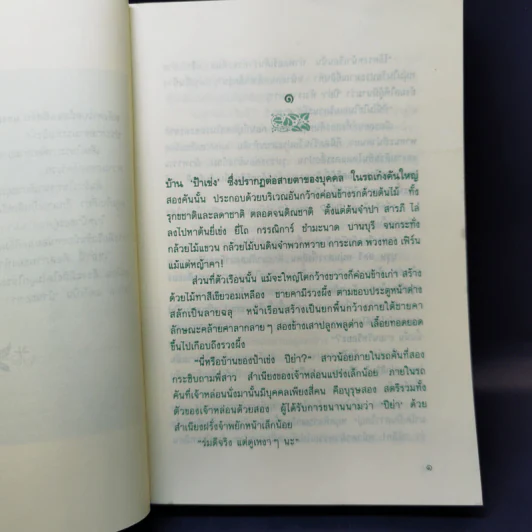 ๑
บ้าน 'ป้าเช่ง' ซึ่งปรากฏต่อสายตาของบุคคล ในรถเก๋งคันใหญ่
สองคันนั้น ประกอบด้วยบริเวณอันกว้างค่อนข้างรกด้วยต้นไม้ ทั้ง
รุกขชาติและลดาชาติ ตลอดจนติณชาติ ตั้งแต่ต้นจำปา สารภี ไล่
ลงไปหาต้นยี่เข่ง ยี่โถ กรรณิการ์ ยำมะนาด บานบุรี จนกระทั่ง
กล้วยไม้แขวน กล้วยไม้บนดินจำพวกหวาย การะเกด พวงทอง เฟิร์น
แม้แต่หญ้าคา!
ส่วนที่ตัวเรือนนั้น แม้จะใหญ่โตกว้างขวางก็ค่อนข้างเก่า สร้าง
ด้วยไม้ทาสีเขียวอมเหลือง ชายคามีรวงผึ้ง ตามขอบประตูหน้าต่าง
สลักเป็นลายฉลุ หน้าเรือนสร้างเป็นยกพื้นกว้างภายใต้ชายคา
ลักษณะคล้ายศาลากลาย ๆ สองข้างเสาปลูกพลูด่าง เลื้อยทอดยอด
ขึ้นไปเกือบถึงรวงผึ้ง
"นี่หรือบ้านของป้าเช่ง ปีย่า?" สาวน้อยภายในรถคันที่สอง
กระซิบถามพี่สาว สำเนียงของเจ้าหล่อนแปร่งเล็กน้อย ภายในรถ
คันที่เจ้าหล่อนนั่งมานั้นมีบุคคลเพียงสี่คน คือบุรุษสอง สตรีรวมทั้ง
ตัวของเจ้าหล่อนด้วยสอง ผู้ได้รับการขนานนามว่า 'ปีย่า' ด้วย
สำเนียงฝรั่งจ๋าพยักหน้าเล็กน้อย
"ร่มดีจริง แต่ดูเหงา ๆ นะ"
๑